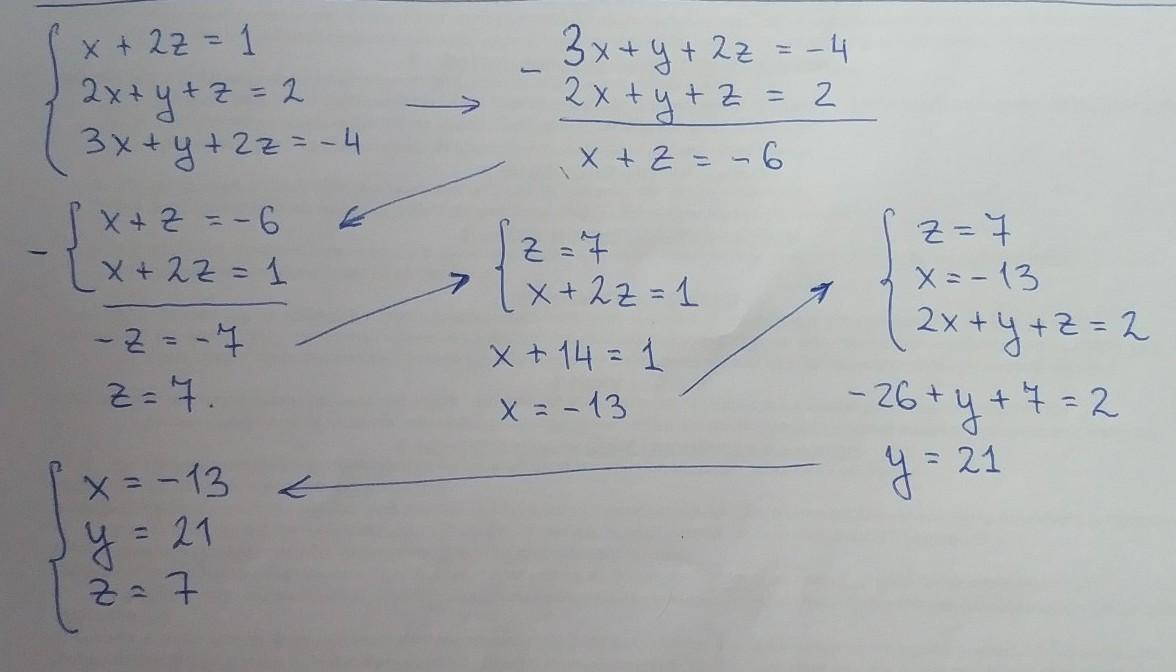 x + 2z = 1
2x + y + z = 2
3x + y + 2z = -4
- 3x + y + 2z = -4
2x + y + z = 2
x + z = -6
- x + z = -6
x + 2z = 1
-z = -7
z = 7.
z = 7
x + 2z = 1
x + 14 = 1
x = -13
z = 7
x = -13
2x + y + z = 2
-26 + y + 7 = 2
y = 21
x = -13
y = 21
z = 7